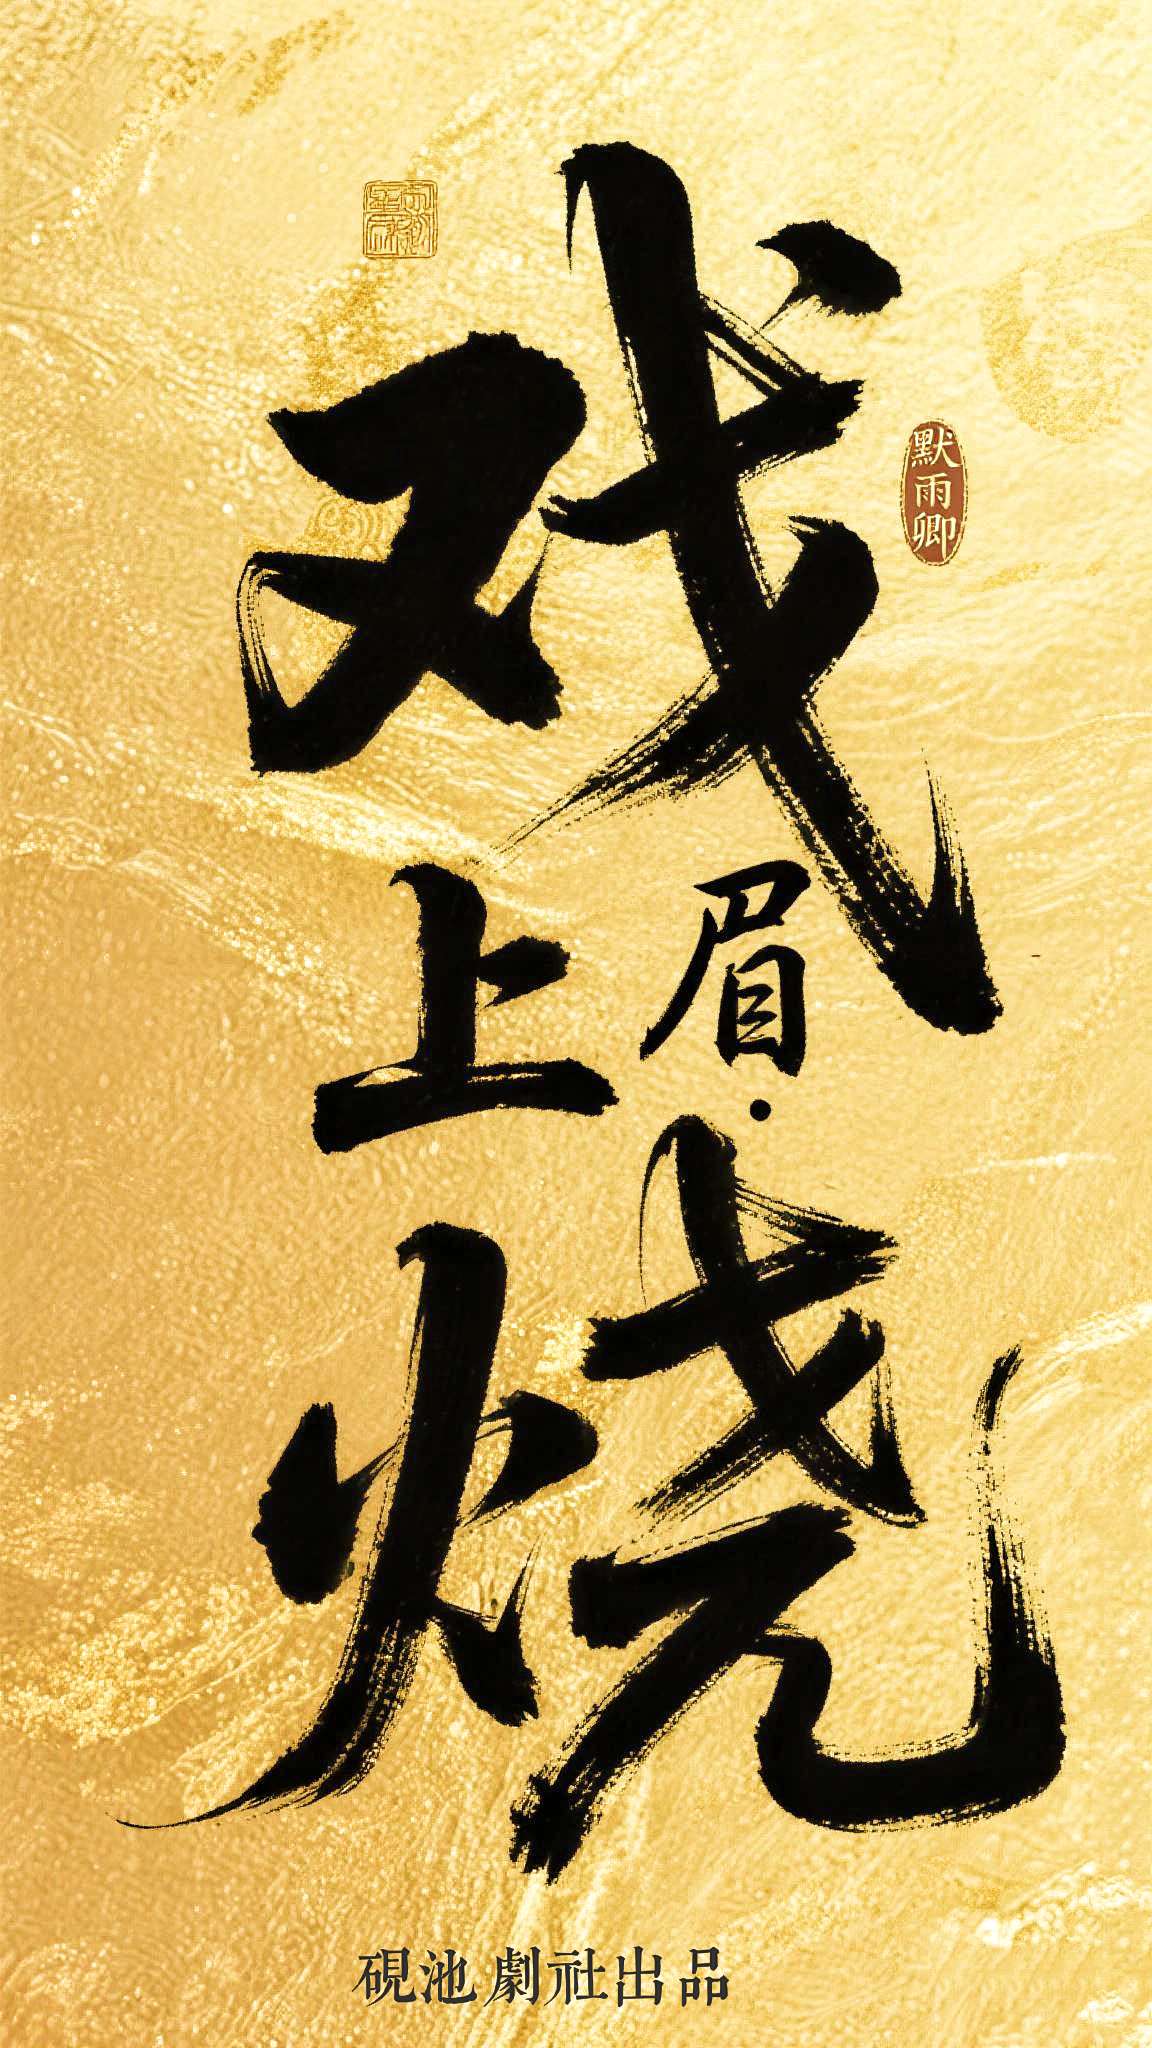 戏
眉上
烧
默雨卿
硯池 劇社出品